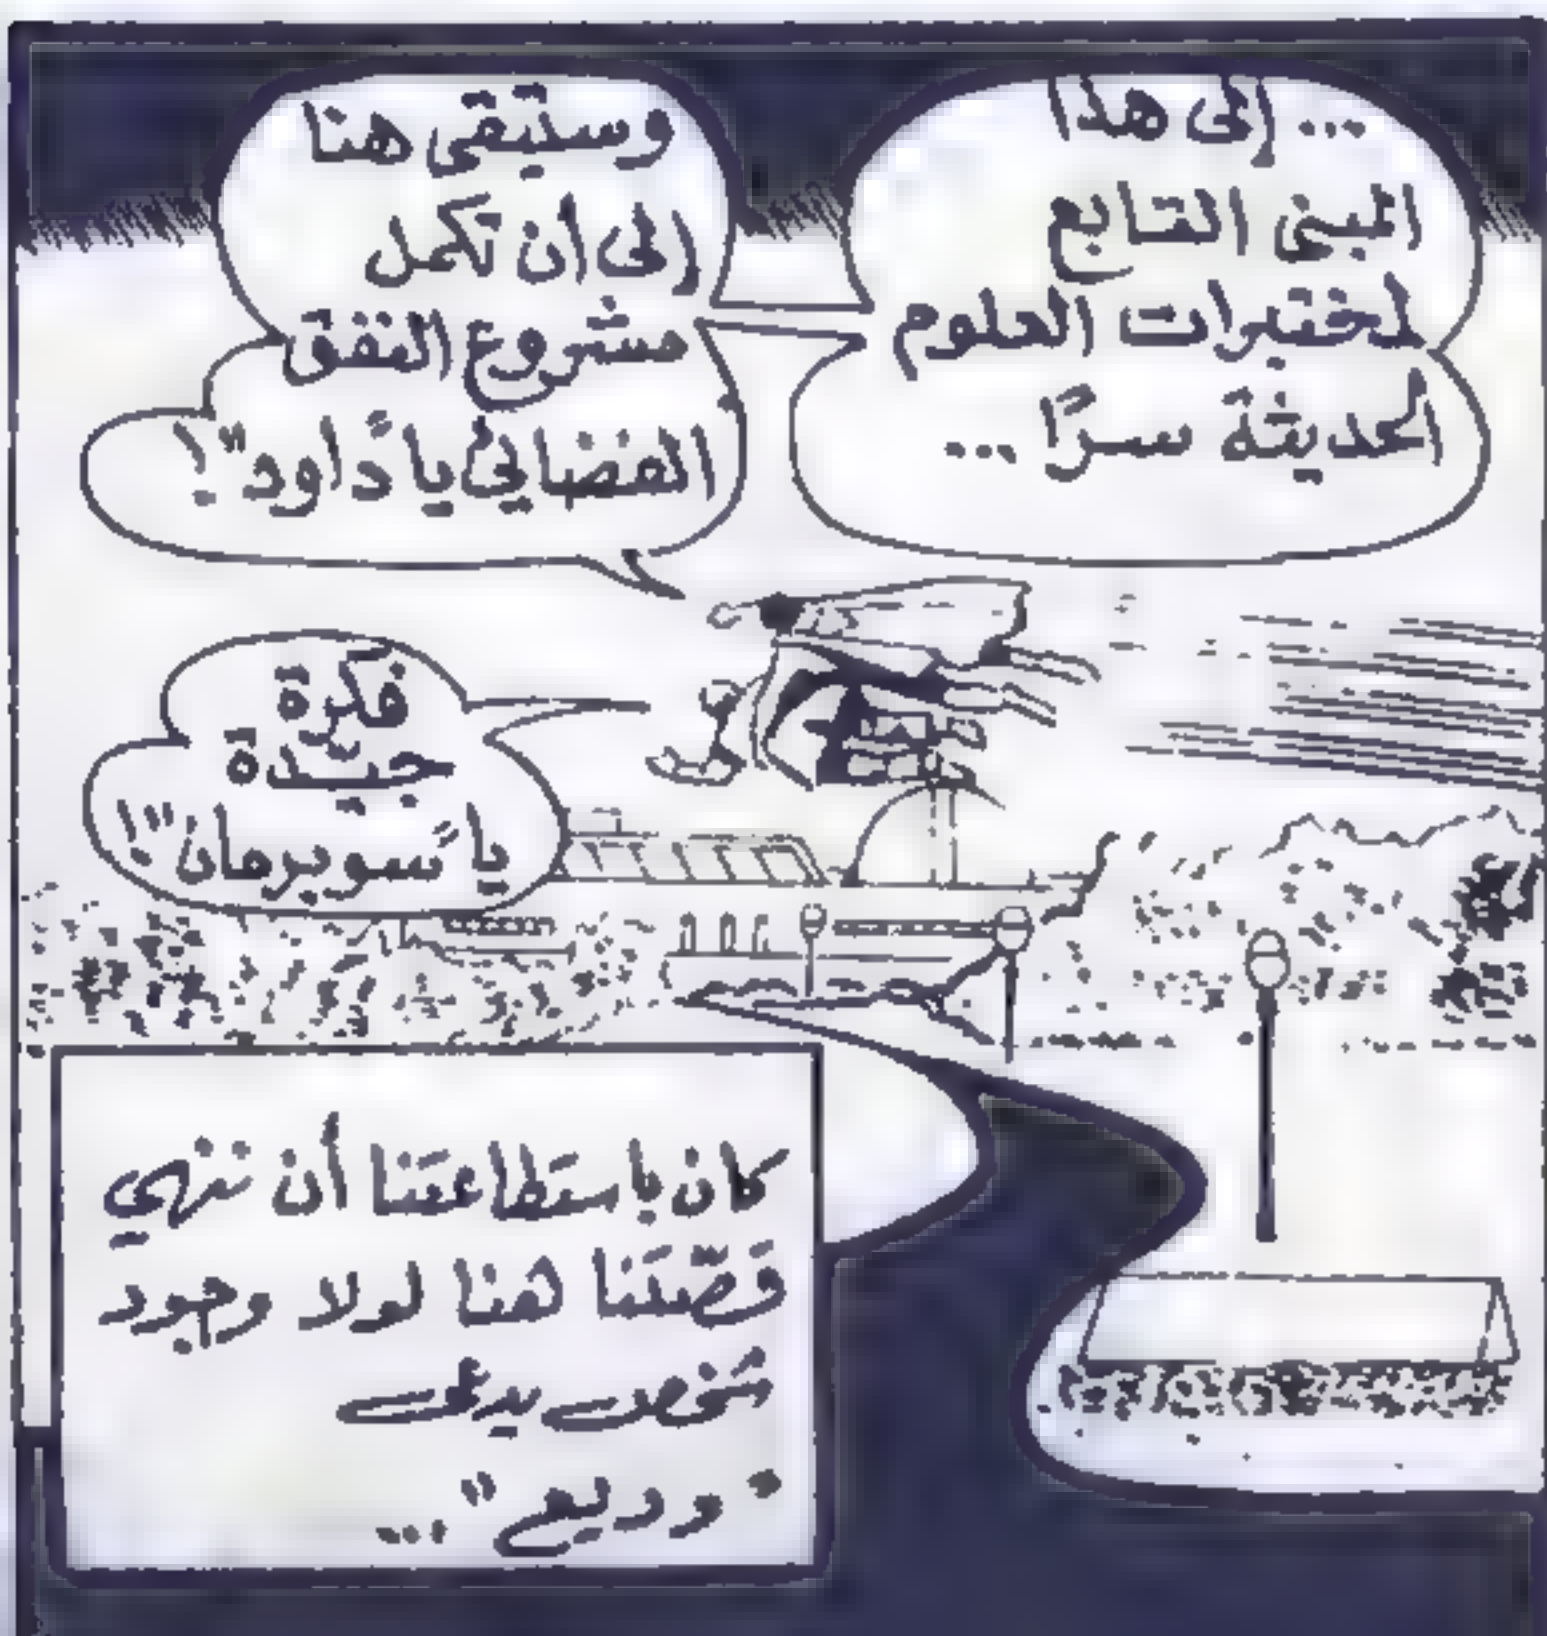 ... إلى هذا
المبنى التابع
لمختبرات العلوم
الحديثة سرًا ...
وستبقى هنا
إلى أن تكمل
مشروع النفق
الفضائي يا "داود"!
فكرة
جيّدة
يا "سوبرمان"!
كان باستطاعتنا أن ننهي
قصّتنا هنا لولا وجود
شخص يدعى
"وديع" ...